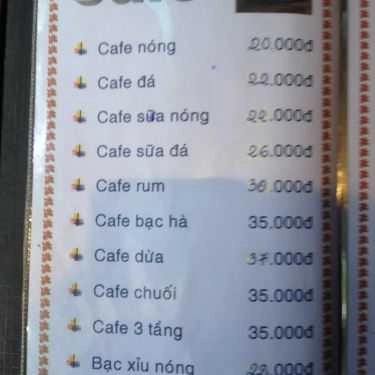 Cafe
Cafe nóng 20.000đ
Cafe đá 22.000đ
Cafe sữa nóng 22.000đ
Cafe sữa đá 26.000đ
Cafe rum
Cafe bạc hà 35.000đ
Cafe dừa 37.000đ
Cafe chuối 35.000đ
Cafe 3 tầng 35.000đ
Bạc xỉu nóng